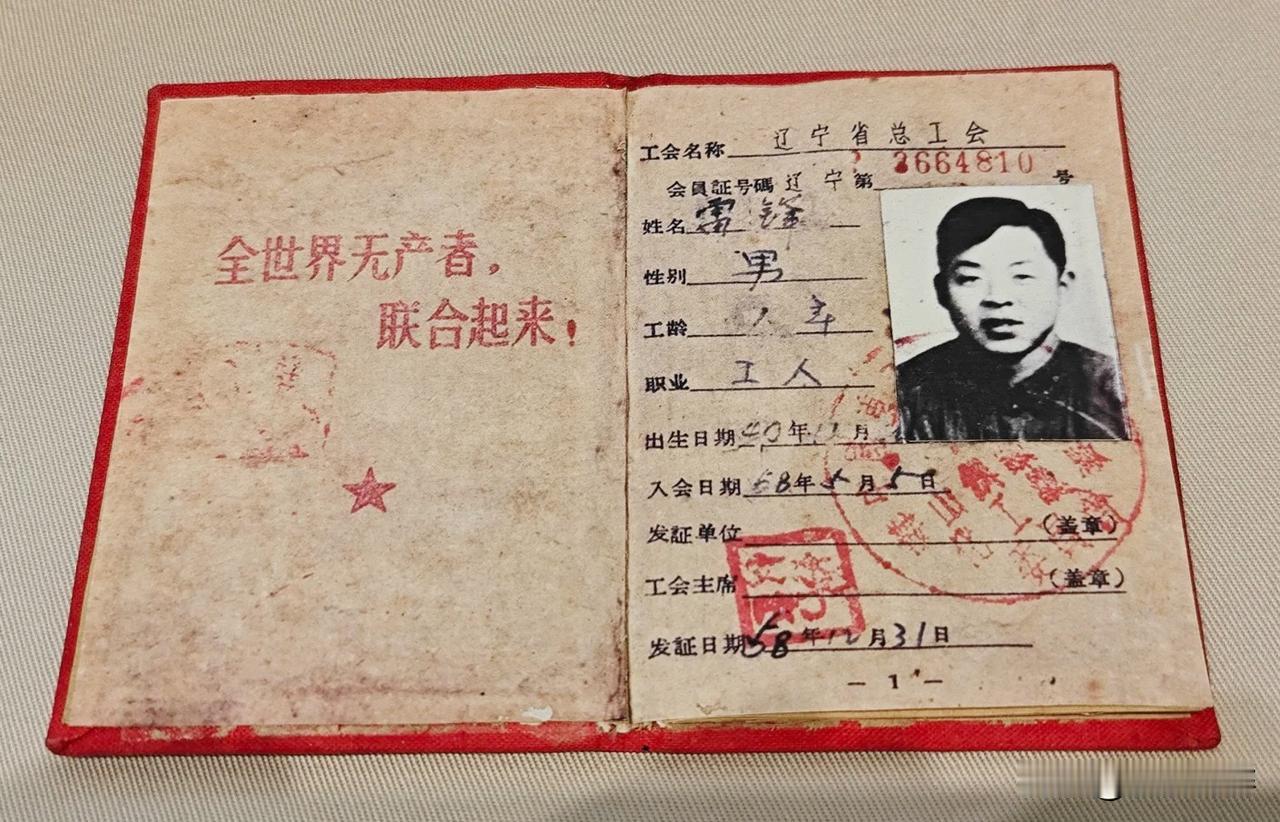 全世界无产者，
联合起来！
工会名称 辽宁省总工会
会員証号碼 辽宁第 2664810 号
姓名 雷锋
性别 男
工龄 年
职业 工人
出生日期 40年12月
入会日期 58年5月5日
发证单位 (盖章)
工会主席 (盖章)
发证日期 58年12月31日
— 1 —